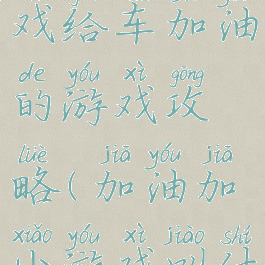 戏给车加油
de yóu xì gōng
的游戏攻
lüè jiā yóu jiā
略(加油加
xiǎo yóu xì jiào shí